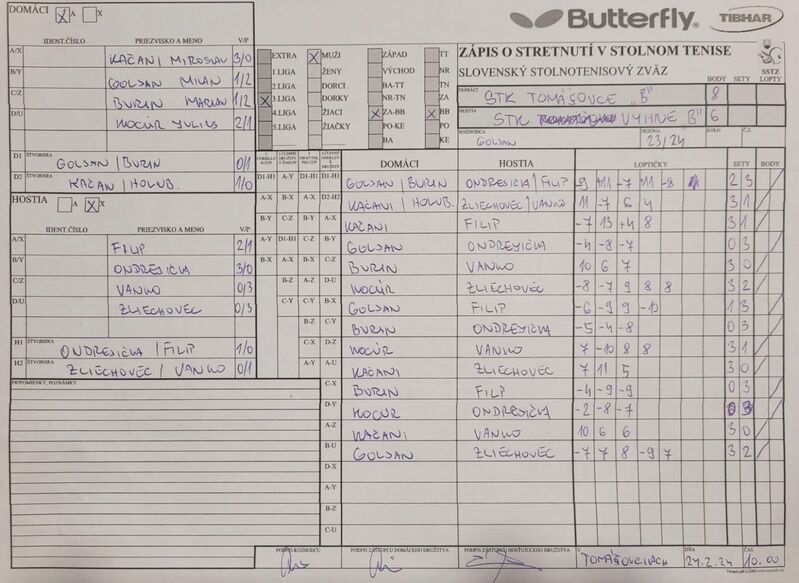 DOMÁCI X A X
Butterfly
TIBHAR
IDENT.ČÍSLO PRIEZVISKO A MENO V/P
A/X KAČANI MIROSLAV 3/0
B/Y GOLJAN MILAN 1/2
C/Z BURIN MARIAN 1/2
D/U KOCÚR JULIUS 2/1
D1 ŠTVORHRA GOLJAN / BURIN 0/1
D2 KAČANI / HOLUB. 1/0
HOSTIA A X X
IDENT.ČÍSLO PRIEZVISKO A MENO V/P
A/X FILIP 2/1
B/Y ONDREJIČKA 3/0
C/Z VANKO 0/3
D/U ZLIECHOVEC 0/3
H1 ŠTVORHRA ONDREJIČKA / FILIP 1/0
H2 ŠTVORHRA ZLIECHOVEC / VANKO 0/1
PRIPOMIENKY, POZNÁMKY
EXTRA X MUŽI ZÁPAD TT
1.LIGA ŽENY VÝCHOD NR
2.LIGA DORCI BA-TT TN
X 3.LIGA DORKY NR-TN ZA
4.LIGA ŽIACI X ZA-BB X BB
5.LIGA ŽIAČKY PO-KE PO
BA KE
ZÁPIS O STRETNUTÍ V STOLNOM TENISE
SLOVENSKÝ STOLNOTENISOVÝ ZVÄZ
BODY SETY LOPTY
SSTZ
DOMÁCI STK TOMÁŠOVCE "B" 8
HOSTIA STK VYHNE "B" 6
ROZHODCA GOLJAN SEZÓNA 23/24 KOLO Č.Z.
DOMÁCI HOSTIA LOPTIČKY SETY BODY
D1-H1 A-Y D1-H1 D1-H1 GOLJAN / BURIN ONDREJIČKA / FILIP -9 11 -7 11 -8 2 3
A-X B-X A-X D2-H2 KAČANI / HOLUB. ZLIECHOVEC / VANKO 11 -7 6 4 3 1
B-Y C-Z B-Y A-X KAČANI FILIP -7 13 4 8 3 1
A-Y D1-H1 C-Z B-Y GOLJAN ONDREJIČKA -4 -8 -7 0 3
B-X A-X B-X C-Z BURIN VANKO 10 6 7 3 0
B-Z A-Z D-U KOCÚR ZLIECHOVEC -8 -7 9 8 8 3 2
C-Y C-Y B-X GOLJAN FILIP -6 -9 9 -10 1 3
B-Z C-Y BURIN ONDREJIČKA -5 -4 -8 0 3
C-X D-Z KOCÚR VANKO 7 -10 8 8 3 1
A-Y A-U KAČANI ZLIECHOVEC 7 11 5 3 0
C-X BURIN FILIP -4 -9 -9 0 3
D-Y KOCÚR ONDREJIČKA -2 -8 -7 0 3
A-Z KAČANI VANKO 10 6 6 3 0
B-U GOLJAN ZLIECHOVEC -7 7 8 -9 7 3 2
D-X
A-Y
B-Z
C-U
PODPIS ROZHODCU PODPIS ZÁSTUPCU DOMÁCEHO DRUŽSTVA PODPIS ZÁSTUPCU HOSŤUJÚCEHO DRUŽSTVA V TOMÁŠOVCIACH DŇA 24.2.24 ČAS 10.00